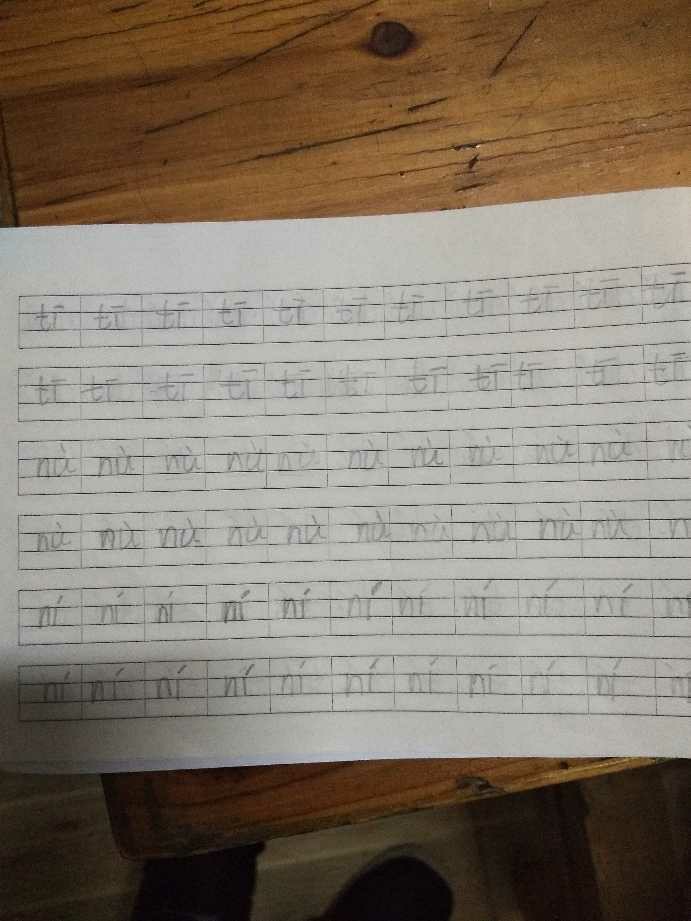 tī tī tī tī tī tī tī tī tī tī tī
tī tī tī tī tī tī tī tī tī tī tī
nà nà nà nà nà nà nà nà nà nà
nà nà nà nà nà nà nà nà nà nà
ní ní ní ní ní ní ní ní ní ní
ní ní ní ní ní ní ní ní ní ní